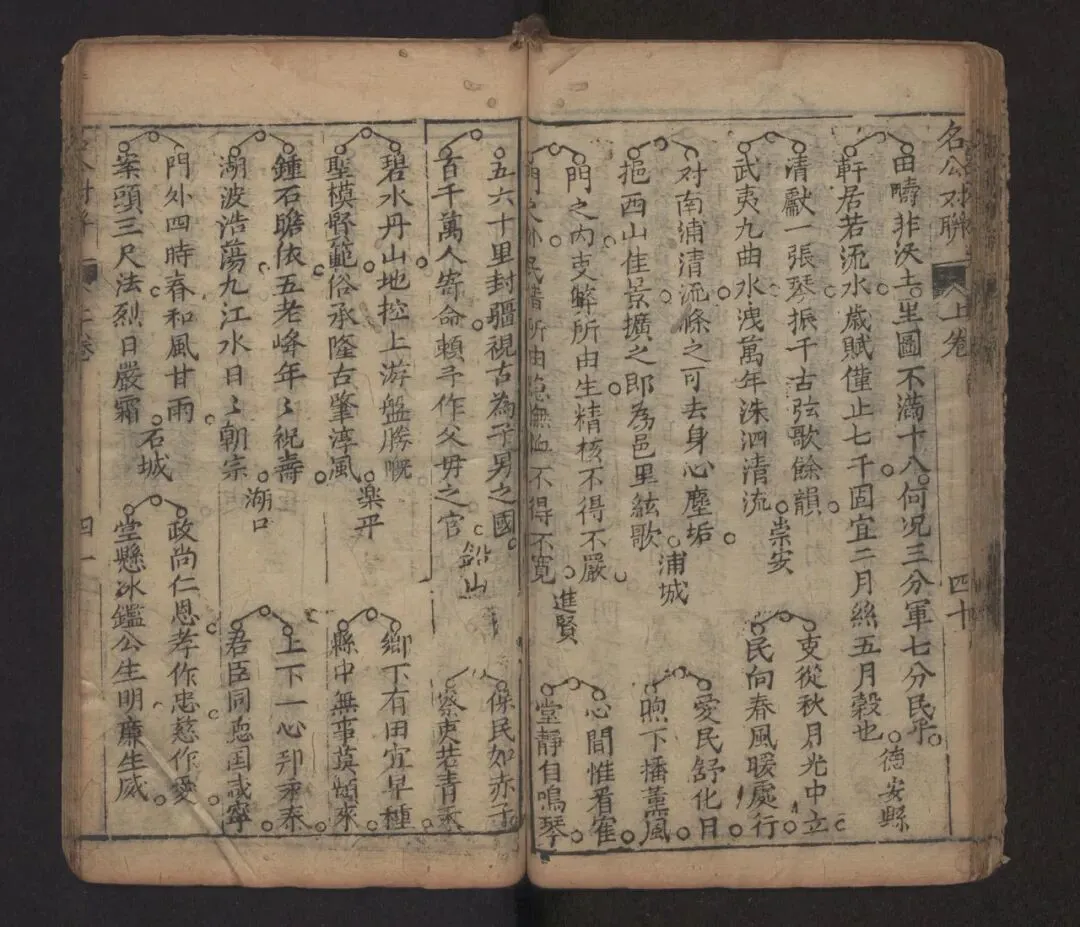 名公对聯
上卷
四十
田疇非沃土生圖不滿十八何况三分軍七分民乎
軒居若流水歲賦僅止七千固宜二月絲五月糓也
德安縣
清獻一張琴振千古弦歌餘韻
武夷九曲水洩萬年洙泗清流
崇安
吏從秋月光中立
民向春風暖處行
对南浦清流滌之可去身心塵垢
挹西山佳景擴之即為邑里絃歌
浦城
愛民舒化日
煦下播薰風
門之内吏弊所由生精核不得不嚴
門之外民情所由 撫恤不得不寛
進賢
心間惟看寉
堂靜自鳴琴
五六十里封疆視古為子男之國
百千萬人寄命頼予作父毋之官
鉛山
保民如赤子
察吏若青
碧水丹山地控上游盤勝槪
聖模賢範俗承隆古肇淳風
楽平
鄉下有田宜早種
縣中無事莫頻來
鍾石瞻依五老峰年〻祝壽
湖波浩蕩九江水日〻朝宗
湖口
上下一心邦永泰
君臣同 囯咸寧
門外四時春和風甘雨
案頭三尺法烈日嚴霜
石城
政尚仁恩孝作忠慈作愛
堂懸冰鑑公生明廉生威
上卷
四一